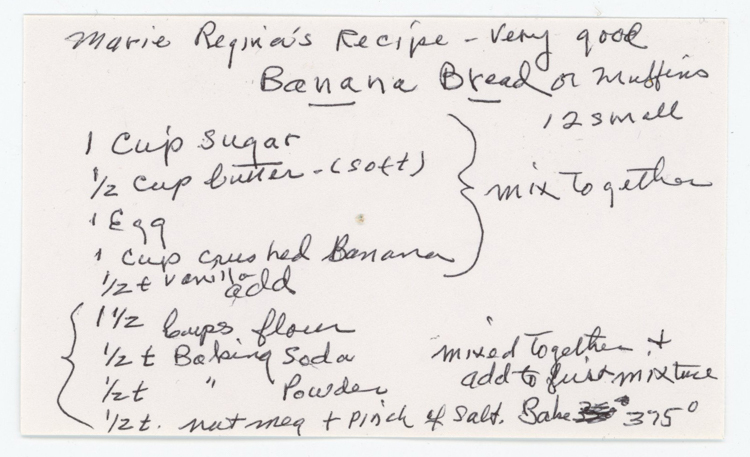 Marie Regina's Recipe - Very good
Banana Bread or Muffins
12 small
1 Cup Sugar
1/2 Cup butter - (soft)
1 Egg
1 Cup crushed Banana
mix together
1/2 t vanilla
add
1 1/2 Cups flour
1/2 t Baking Soda
1/2 t " Powder
mixed together +
add to first mixture
1/2 t. nutmeg + pinch of salt. Bake 375°